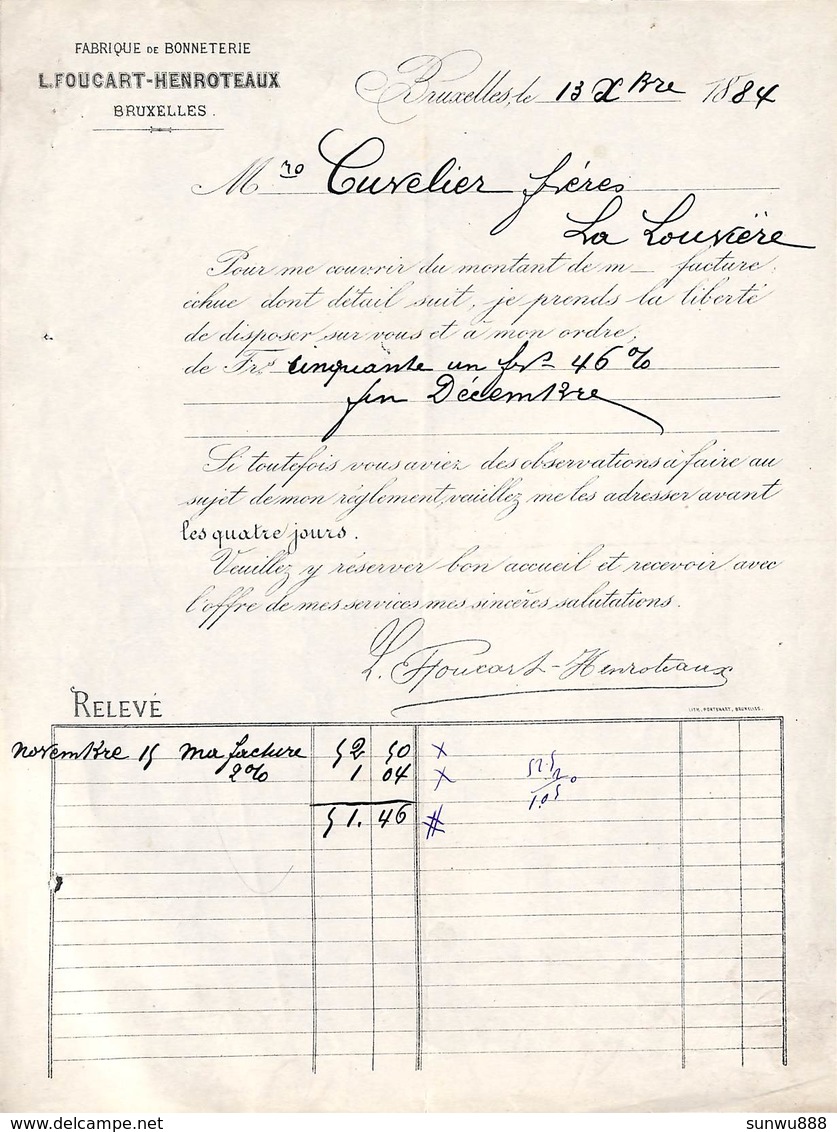 FABRIQUE DE BONNETERIE
L. FOUCART-HENROTEAUX
BRUXELLES.
Bruxelles, le 13 Xbre 1884
Mrs Cuvelier frères
La Louvière
Pour me couvrir du montant de m_ facture,
échue dont détail suit, je prends la liberté
de disposer sur vous et à mon ordre,
de Frs. cinquante un frs 46 %
fin Décembre
Si toutefois vous aviez des observations à faire au
sujet de mon réglement, veuillez me les adresser avant
les quatre jours.
Veuillez y réserver bon accueil et recevoir avec
l'offre de mes services mes sincères salutations.
L. Foucart-Henroteaux
RELEVÉ
LITH. PORTENART, BRUXELLES.
novembre 15 ma facture 52 50 x
2% 1 04 x
51. 46 #
52.5
20
1.05
delcampe.net
sunwu888